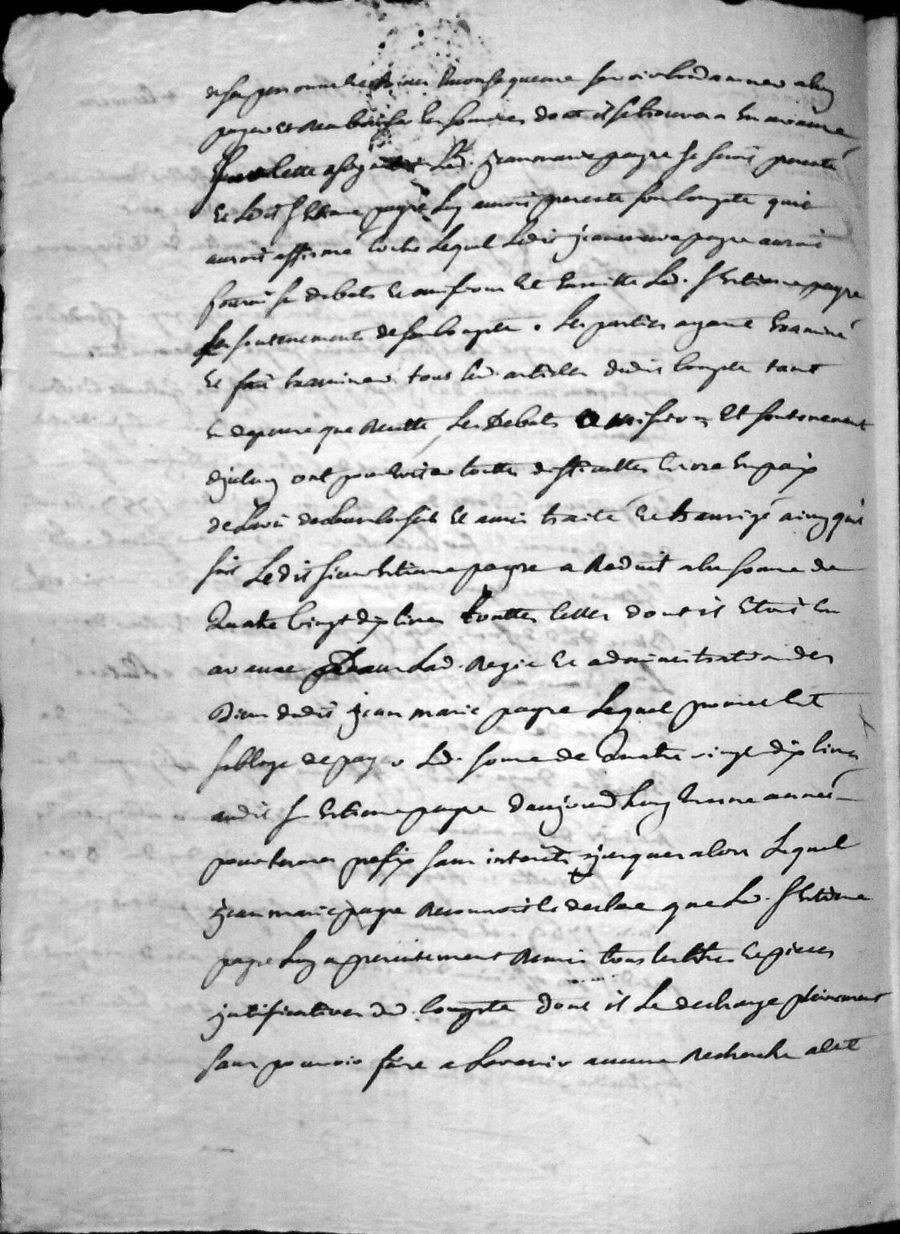 de sa personne et biens en consequence se voir condamner a luy
payer et rembourser les sommes dont il se trouvera en avance
Sur cette assignation Led. jean marie payre se seroit presenté
Et Ledit Sr Etiene payre Luy auroit presenté son compte qu'il
auroit affirmé Lequel Ledit jean marie payre auroit
fourni ses debats Et ensuitte Led. Sr Etiene payre
ses soutenements de son compte. Les parties ayant Examiné
Et fait Examiner tous les articles dudit compte tant
En depence que Recette, Les Debats Et soutenement
d'iceluy ont pour Eviter touttes difficultes vivre En paix
de L'avis de Leur conseil Et amis traité Et transigé ainsy que
suit Ledit sieur Etiene payre a Reduit a la some de
Quatre vingt dix livres touttes celles dont il Etoit En
avance pour Lad. Regie Et administration des
Biens dudit jean marie payre Lequel promet Et
s'oblige de payer Lad. some de Quatre vingt dix livres
audit Sr Etiene payre d'aujourd'huy En une année
pour terme prefix sans interets jusques alors Lequel
jean marie payre Reconnoit Et declare que Led. Sr Etiene
payre Luy a presentement Remis tous les titres Et pieces
justificatives dud. compte dont il Le decharge pleinement
sans pouvoir faire a L'avenir aucune Recherche a cet